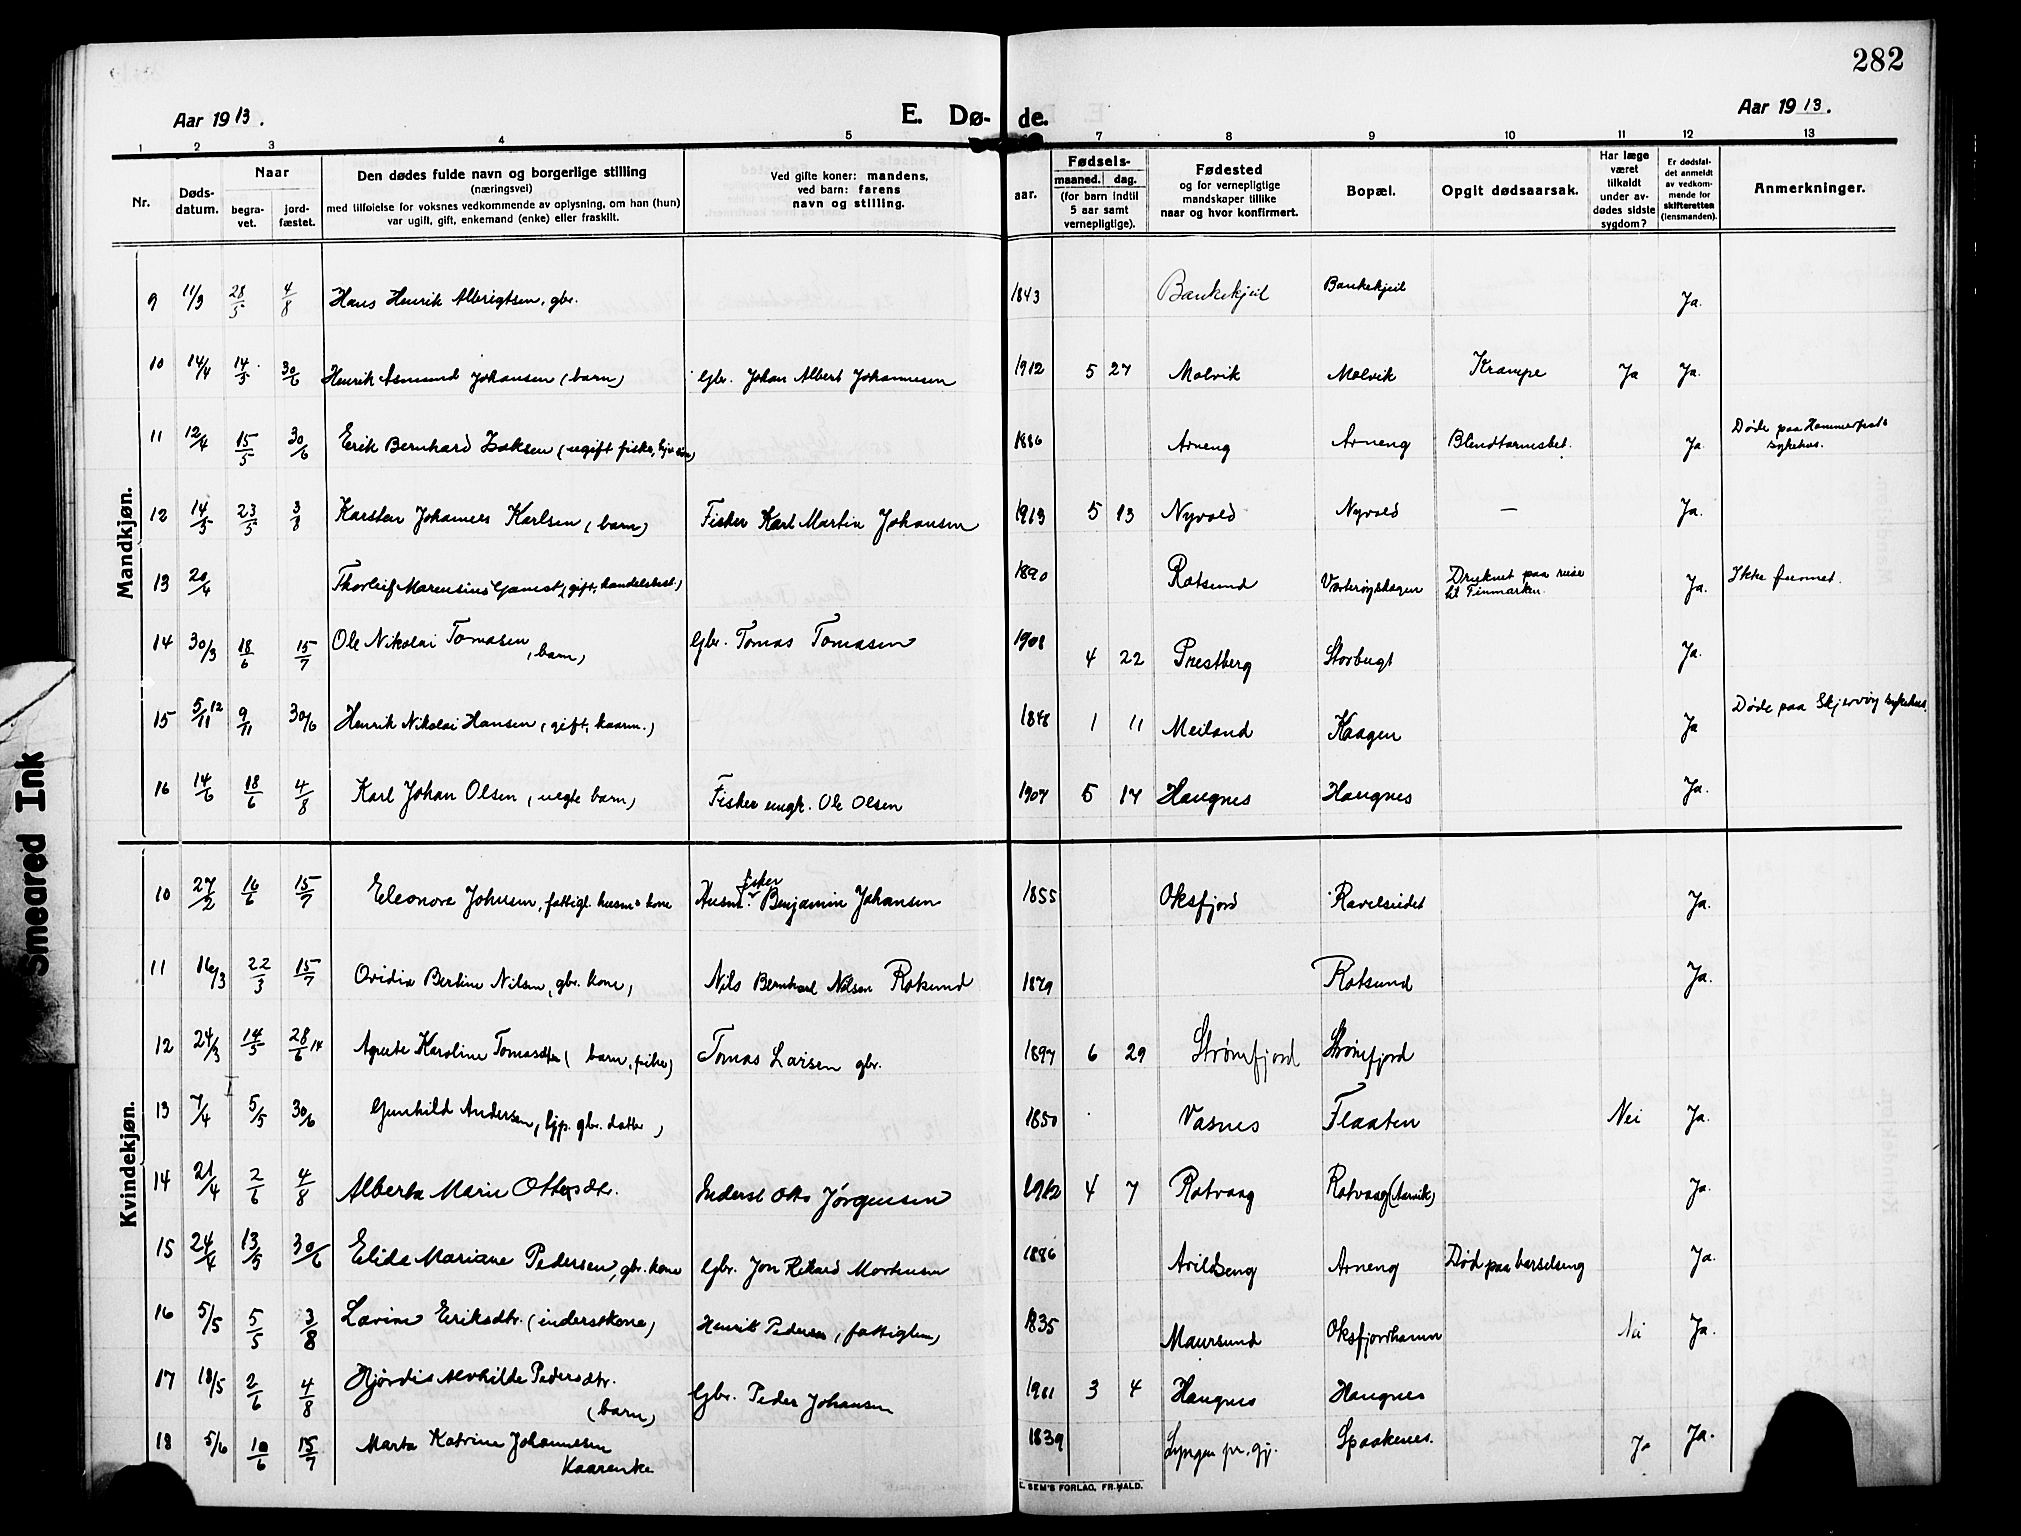 282
Aar 1913.
E. Dø- de.
Aar 1913.
1 2 3 4 5 7 8 9 10 11 12 13
Nr.
Døds-
datum.
Naar
begra-
vet.
jord-
fæstet.
Den dødes fulde navn og borgerlige stilling
(næringsvei)
med tilføielse for voksnes vedkommende av oplysning, om han (hun)
var ugift, gift, enkemand (enke) eller fraskilt.
Ved gifte koner: mandens,
ved barn: farens
navn og stilling.
aar.
Fødsels-
maaned. dag.
(for barn indtil
5 aar samt
vernepligtige).
Fødested
og for vernepligtige
mandskaper tillike
naar og hvor konfirmert.
Bopæl.
Opgit dødsaarsak.
Har læge
været
tilkaldt
under av-
dødes sidste
sygdom?
Er dødsfal-
det anmeldt
av vedkom-
mende for
skifteretten
(lensmanden).
Anmerkninger.
Mandkjøn.
9 11/3 28/5 4/8 Hans Henrik Albrigtsen, gbr. 1843 Bankekjeil Bankekjeil Ja.
10 14/4 14/5 30/6 Henrik Asmund Johansen (barn) Gbr. Johan Albert Johannesen 1912 5 27 Molvik Molvik Krampe Ja Ja.
11 12/4 15/5 30/6 Erik Bernhard Isaksen (ugift fisker, 1886 Arneng Arneng Blindtarmsbet. Ja. Døde paa Hammerfests
sykehus.
12 14/5 23/5 3/8 Karsten Johannes Karlsen (barn) Fisker Karl Martin Johansen 1913 5 13 Nyvold Nyvold — Ja.
13 20/4 Thorleif Marensius Gamst, (gift, handelsbest.) 1890 Rotsund Druknet paa reise
til Finmarken. Ja. Ikke funnet.
14 30/3 18/6 15/7 Ole Nikolai Tomasen, barn) Gbr. Tomas Tomasen 1908 4 22 Prestberg Storbugt Ja.
15 5/11 12 9/11 30/6 Henrik Nikolai Hansen (gift, kaarm.) 1848 1 11 Meiland Kaagen Ja Døde paa Skjervøy sykehus.
16 14/6 18/6 4/8 Karl Johan Olsen (uegte barn) Fisker ungk. Ole Olsen 1907 5 17 Haugnes Haugnes Ja.
Kvindekjøn.
10 27/2 16/6 15/7 Eleonore Johnsen, fattigl. husm. kone Husm. fisker Benjamin Johansen 1855 Oksfjord Ravelseidet Ja.
11 16/3 22/3 15/7 Ovidia Bertine Nilsen, gbr. kone, Nils Bernhard Nilsen Rotsund 1879 Rotsund Ja.
12 24/3 14/5 28/6 14 Agnete Karoline Tomasdtr (barn, pike) Tomas Larsen gbr. 1897 6 29 Strømfjord Strømfjord
13 7/4 5/5 30/6 Gunhild Andersen, gbr. datter) 1850 Vasnes Flaaten Nei Ja.
14 21/4 2/6 4/8 Alberta Marie Ottesdtr. Inderst Otto Jørgensen 1912 4 7 Rotvaag Rotvaag (Aarvik) Ja.
15 24/4 13/5 30/6 Elida Mariane Pedersen, gbr. kone Gbr. Jon Rikard Mortensen 1886 Arildseng Arneng Død paa barselseng Ja.
16 5/5 5/5 3/8 Lavine Eriksdtr. (inderstkone) Henrik Pedersen, (fattiglem) 1835 Maursund Oksfjordhamn Nei Ja.
17 18/5 2/6 4/8 Hjørdis Alvhilde Pedersdtr.
(barn) Gbr. Peder Johansen 1911 3 4 Haugnes Haugnes
18 5/6 10/6 15/7 Marta Katrine Johannesen
Kaarenke 1839 Lyngen pr.gj. Spaakenes. Ja Ja.
E. SEM'S FORLAG, FR.HALD.
Smeared Ink